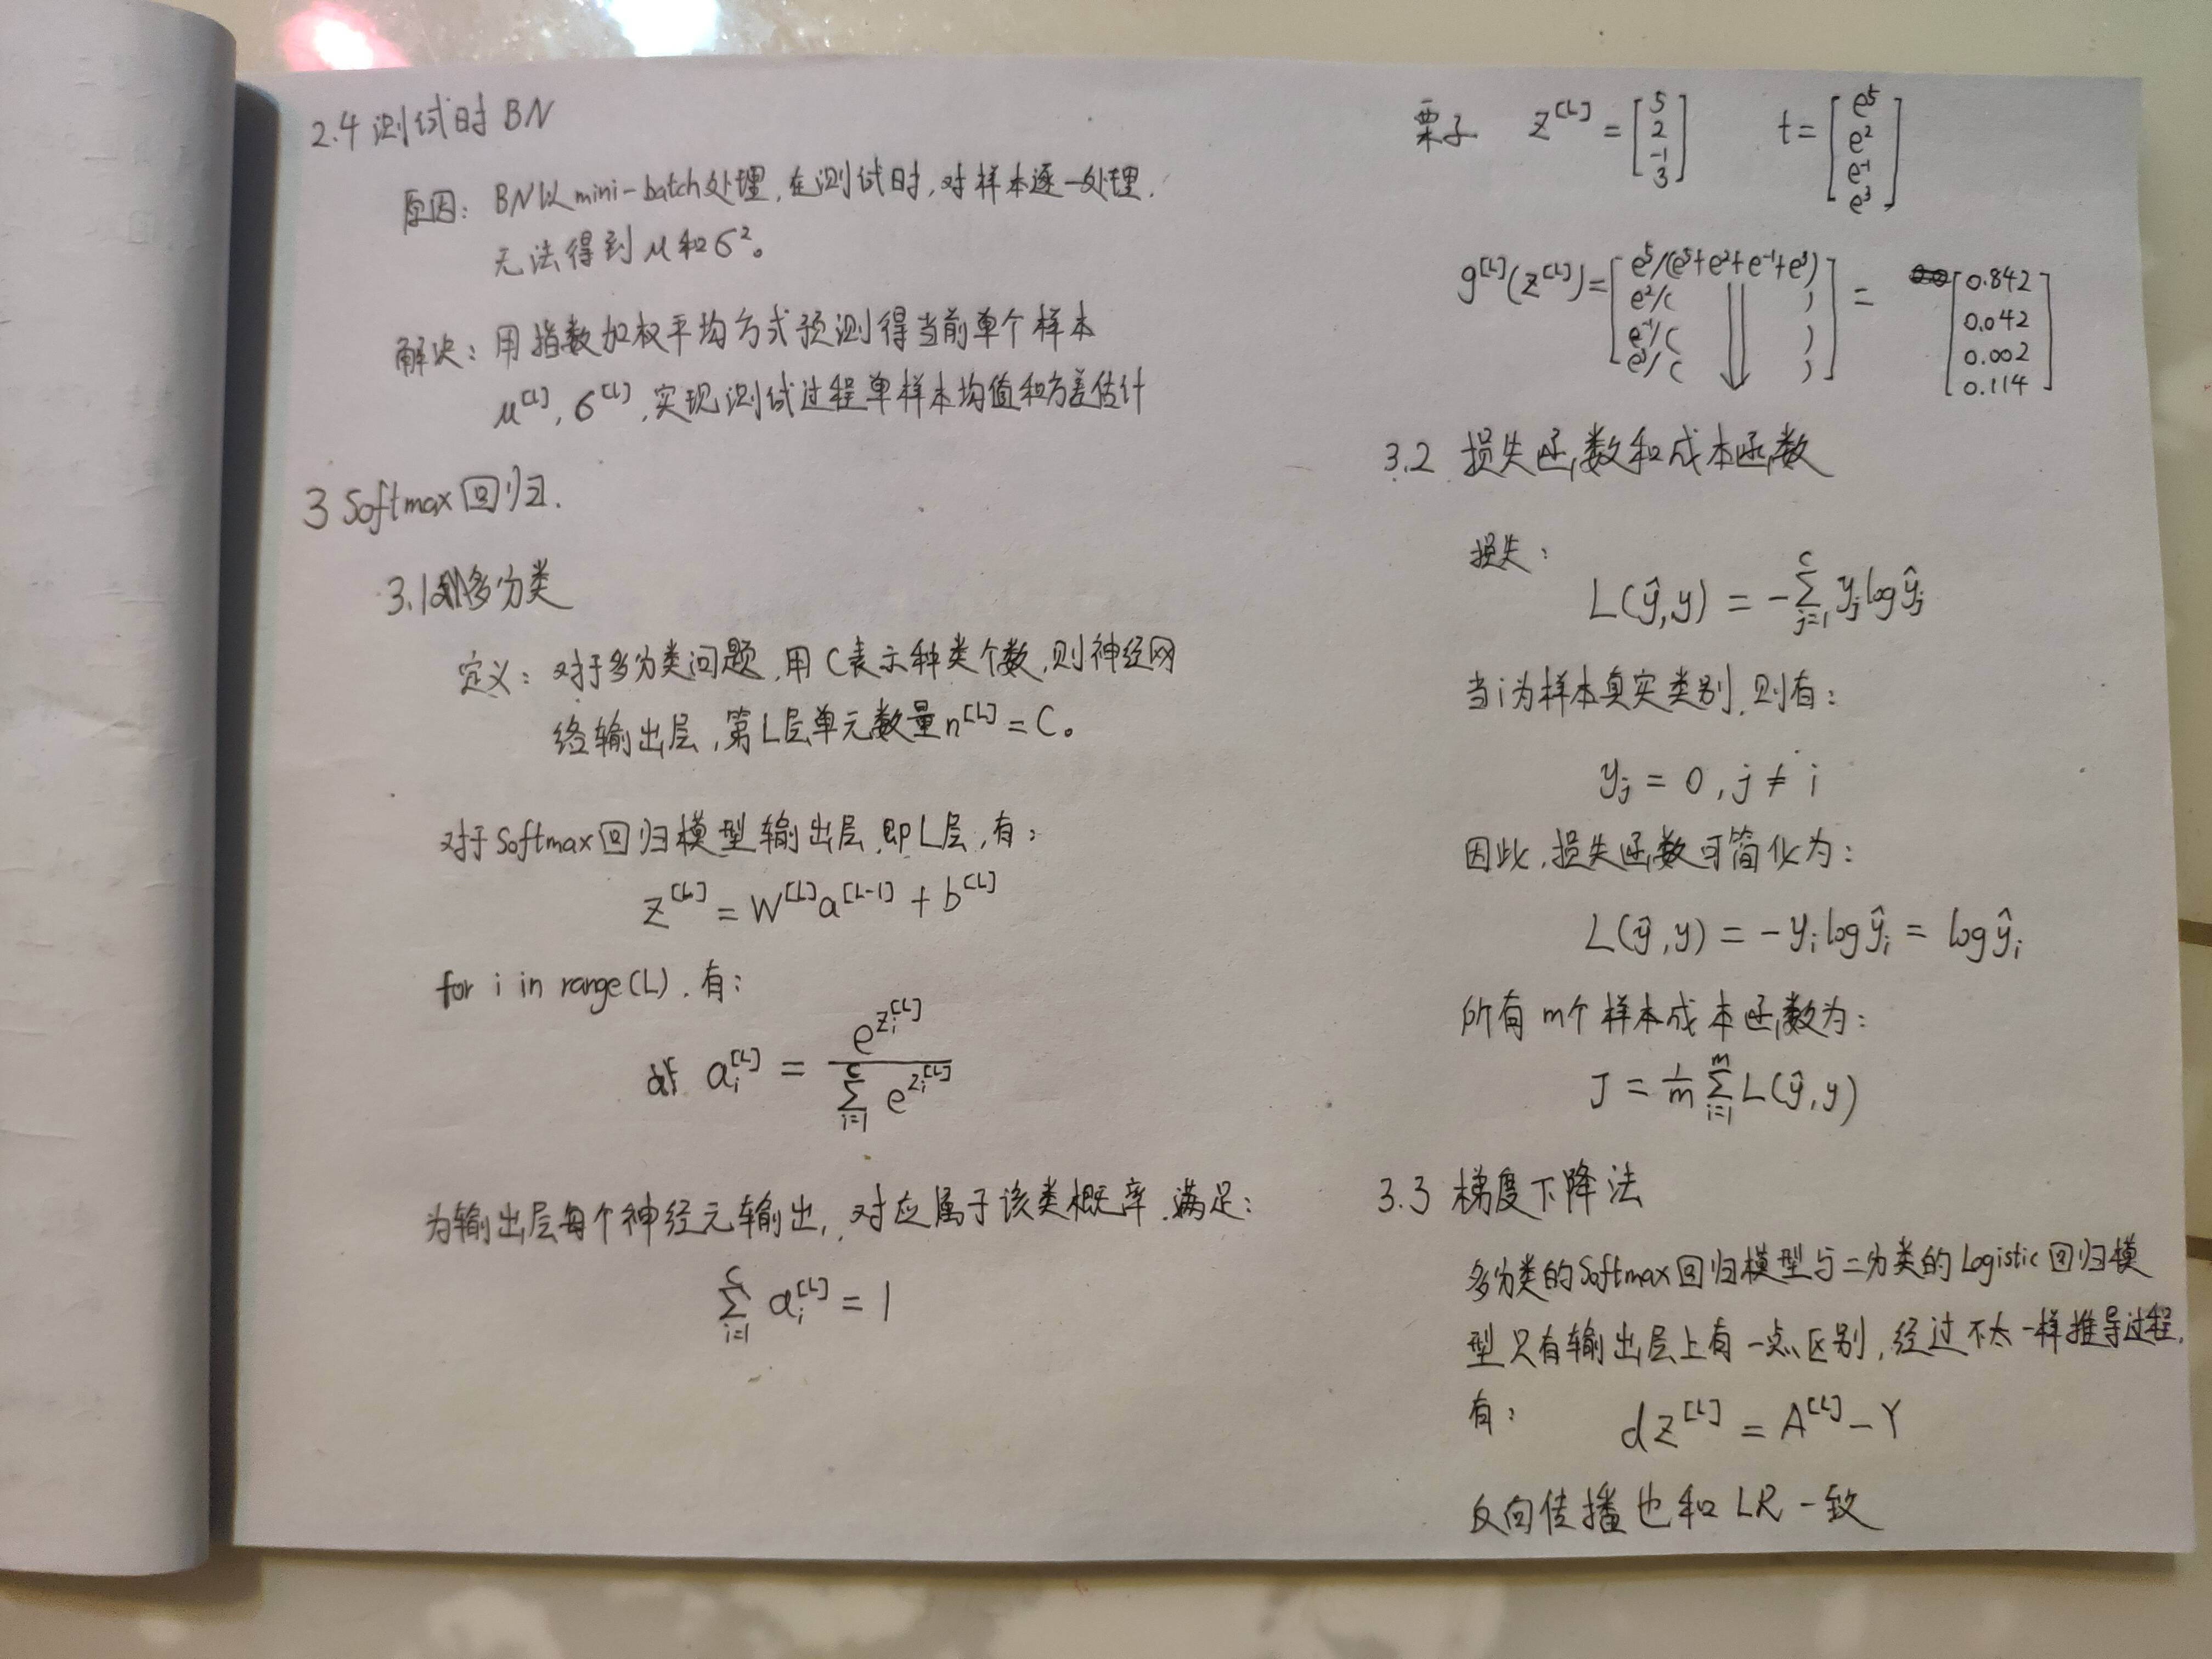 2.4 测试时 BN
原因: BN以mini-batch处理,在测试时,对样本逐一处理.
无法得到 μ 和 σ²。
解决: 用指数加权平均方式预测得当前单个样本
μ^[L], σ^[L], 实现测试过程单样本均值和方差估计
3 Softmax 回归.
3.1 多分类
定义: 对于多分类问题,用C表示种类个数,则神经网
络输出层,第L层单元数量n^[L] = C。
对于Softmax回归模型输出层,即L层,有:
z^[L] = W^[L]a^[L-1] + b^[L]
for i in range(L).有:
a_i^[L] = e^{z_i^[L]} / ∑_{i=1}^{C} e^{z_i^[L]}
为输出层每个神经元输出,对应属于该类概率.满足:
∑_{i=1}^{C} a_i^[L] = 1
栗子 z^[L] = [5 2 -1 3] t = [e^5 e^2 e^-1 e^3]
g^[L](z^[L]) = [e^5/(e^5+e^2+e^-1+e^3) e^2/( ) e^-1/( ) e^3/( )] = [0.842 0.042 0.002 0.114]
3.2 损失函数和成本函数
损失:
L(ŷ,y) = -∑_{j=1}^{C} y_j log ŷ_j
当i为样本真实类别.则有:
y_j = 0, j ≠ i
因此,损失函数可简化为:
L(ŷ,y) = -y_i log ŷ_i = log ŷ_i
所有m个样本成本函数为:
J = 1/m ∑_{i=1}^{m} L(ŷ,y)
3.3 梯度下降法
多分类的Softmax回归模型与二分类的Logistic回归模
型只有输出层上有一点区别,经过不太一样推导过程,
有: dz^[L] = A^[L] - Y
反向传播也和LR一致